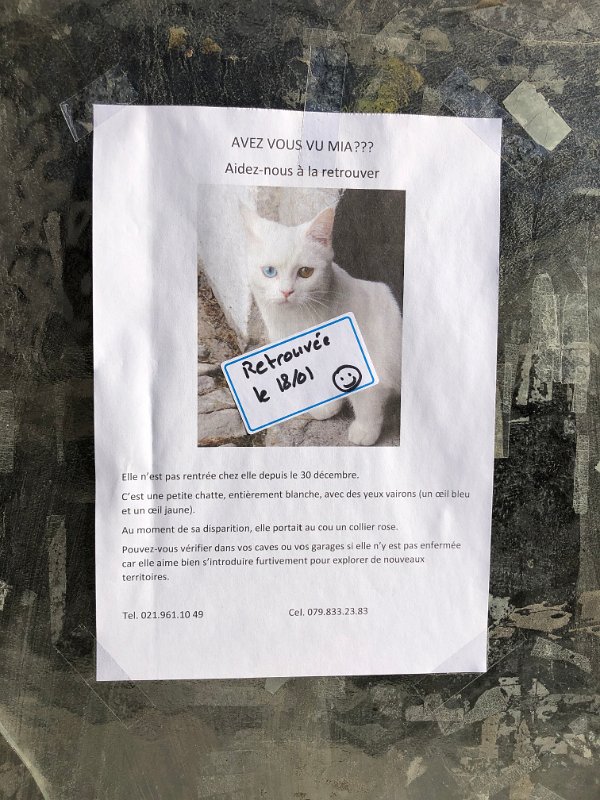 AVEZ VOUS VU MIA???
Aidez-nous à la retrouver
Retrouvée
le 18/01
Elle n'est pas rentrée chez elle depuis le 30 décembre.
C'est une petite chatte, entièrement blanche, avec des yeux vairons (un œil bleu
et un œil jaune).
Au moment de sa disparition, elle portait au cou un collier rose.
Pouvez-vous vérifier dans vos caves ou vos garages si elle n'y est pas enfermée
car elle aime bien s'introduire furtivement pour explorer de nouveaux
territoires.
Tel. 021.961.10 49 Cel. 079.833.23.83